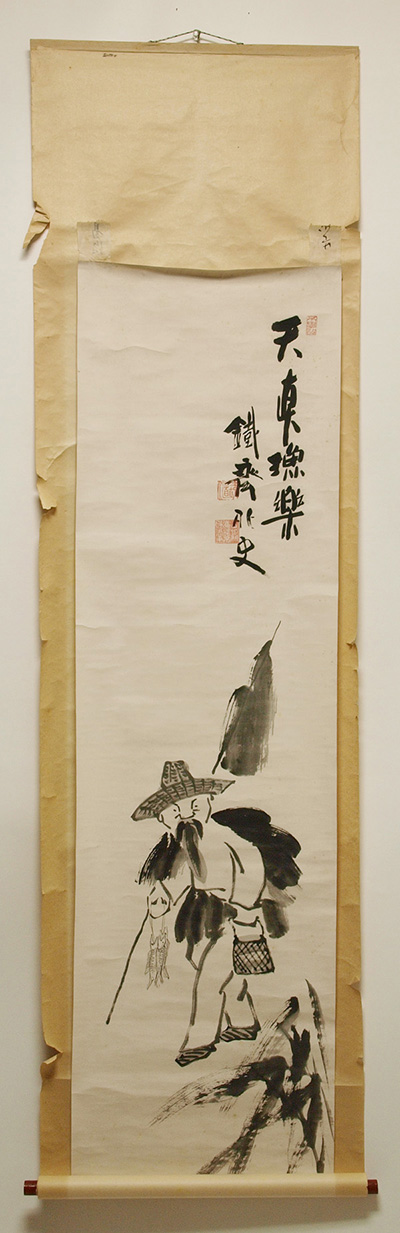 天真漁樂
鐵齋外史